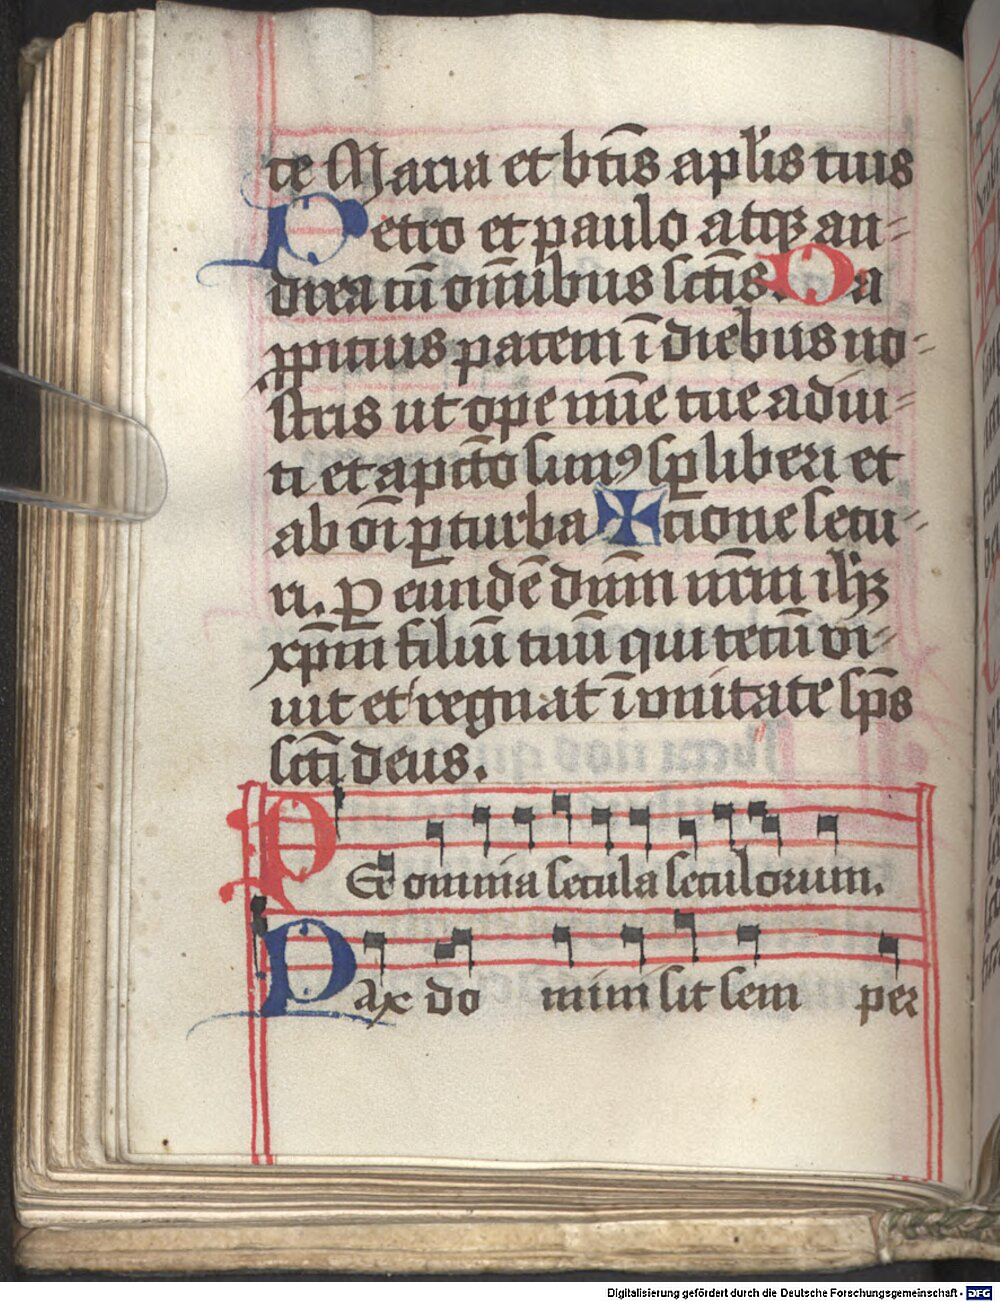 te Maria et bt̄is apl̄is tuis
Petro et paulo atqꝫ an-
drea cū om̄ībus sct̄is. Da
ꝓpitius pacem ī diebus no-
stris ut ope mīe tue adiu-
ti et a pct̄o simꝰ sꝑ liberi et
ab oī ꝑturba ✠ tione secu-
ri. ꝑ eundē dn̄m nr̄m ih̄ꝫ
xp̄m filiū tuū qui tecū vi-
uit et regnat ī vnitate sp̄s
sct̄i deus.
PEr omnia secula seculorum.
Pax do mini sit sem per
Digitalisierung gefördert durch die Deutsche Forschungsgemeinschaft - DFG